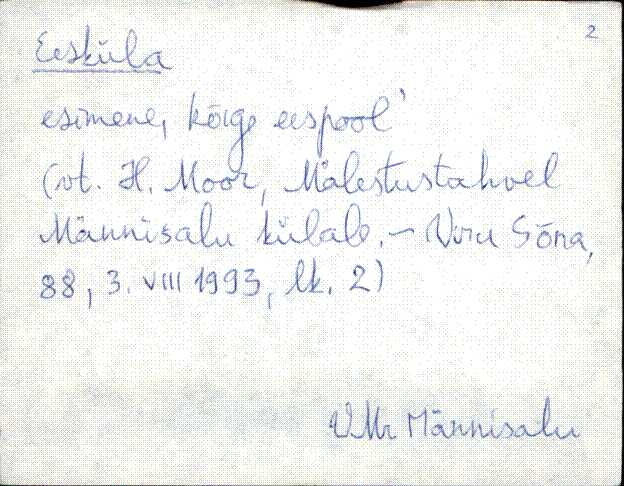 2
Eesküla
esimene, kõige eespool'
(vt. H. Moor, Mälestustahvel
Männisalu külale. – Viru Sõna,
88, 3. VIII 1993, lk. 2)
VMr Männisalu